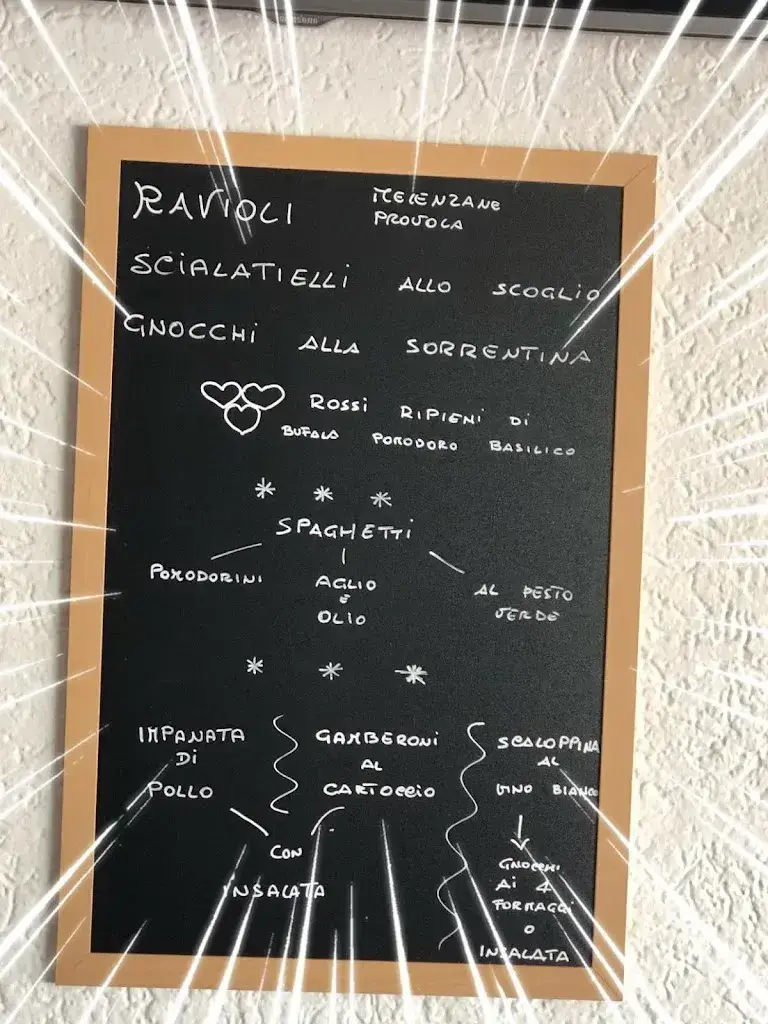 SAMSUNG
RAVIOLI MELENZANE PROVOLA
SCIALATIELLI ALLO SCOGLIO
GNOCCHI ALLA SORRENTINA
ROSSI RIPIENI DI
BUFALA POMODORO BASILICO
SPAGHETTI
POMODORINI
AGLIO
E
OLIO
AL PESTO
VERDE
IMPANATA
DI
POLLO
GAMBERONI
AL
CARTOCCIO
CON
INSALATA
SCALOPPINA
AL
VINO BIANCO
GNOCCHI
AI 4
FORMAGGI
O
INSALATA